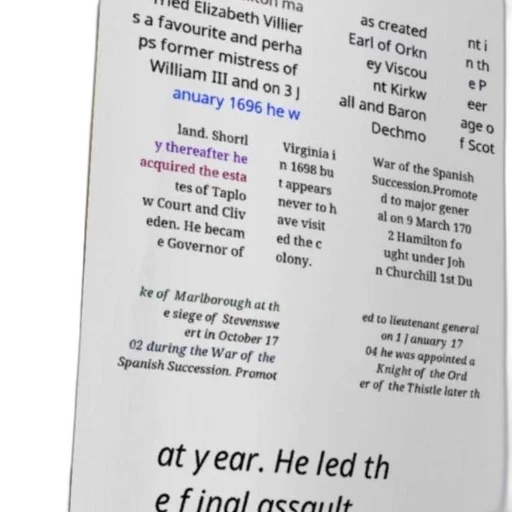 ried Elizabeth Villier
s a favourite and perha
ps former mistress of
William III and on 3 J
anuary 1696 he w
as created
Earl of Orkn
ey Viscou
nt Kirkw
all and Baron
Dechmo
nt i
n th
e P
eer
age o
f Scot
land. Shortl
y thereafter he
acquired the esta
tes of Taplo
w Court and Cliv
eden. He becam
e Governor of
Virginia i
n 1698 bu
t appears
never to h
ave visit
ed the c
olony.
War of the Spanish
Succession.Promote
d to major gener
al on 9 March 170
2 Hamilton fo
ught under Joh
n Churchill 1st Du
ke of Marlborough at th
e siege of Stevenswe
ert in October 17
02 during the War of the
Spanish Succession. Promot
ed to lieutenant general
on 1 January 17
04 he was appointed a
Knight of the Ord
er of the Thistle later th
at year. He led th
e final assault